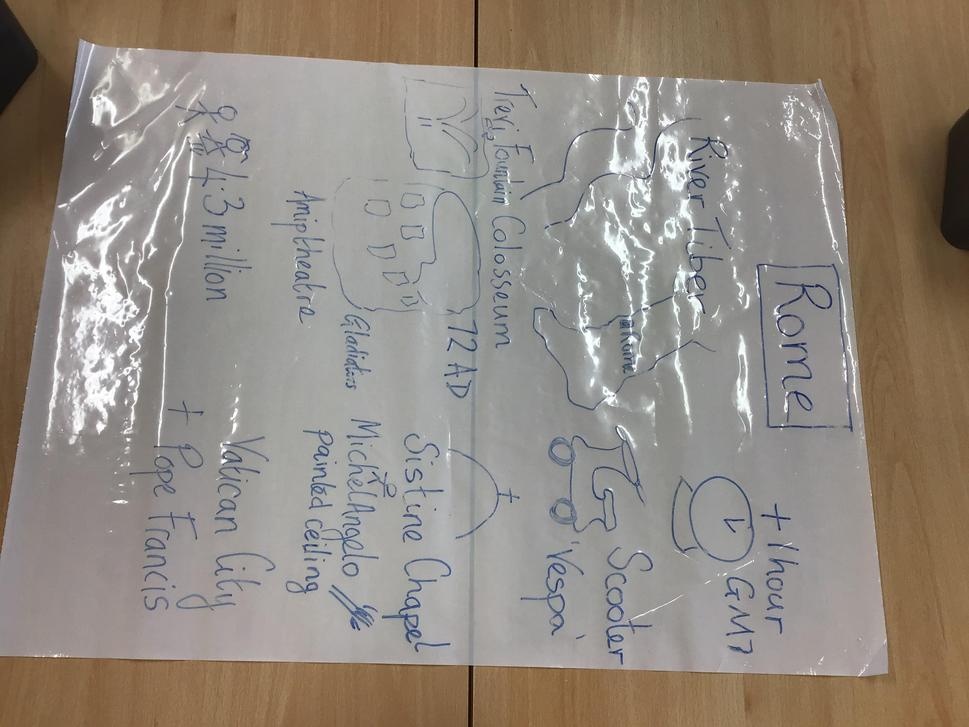 Rome
River Tiber
Rome
+ 1 hour
GMT
Scooter
'Vespa'
Trevi Fountain
Colosseum
72 AD
Gladiators
Amiptheatre
Sistine Chapel
MichelAngelo
painted ceiling
4.3 million
Vatican City
+ Pope Francis